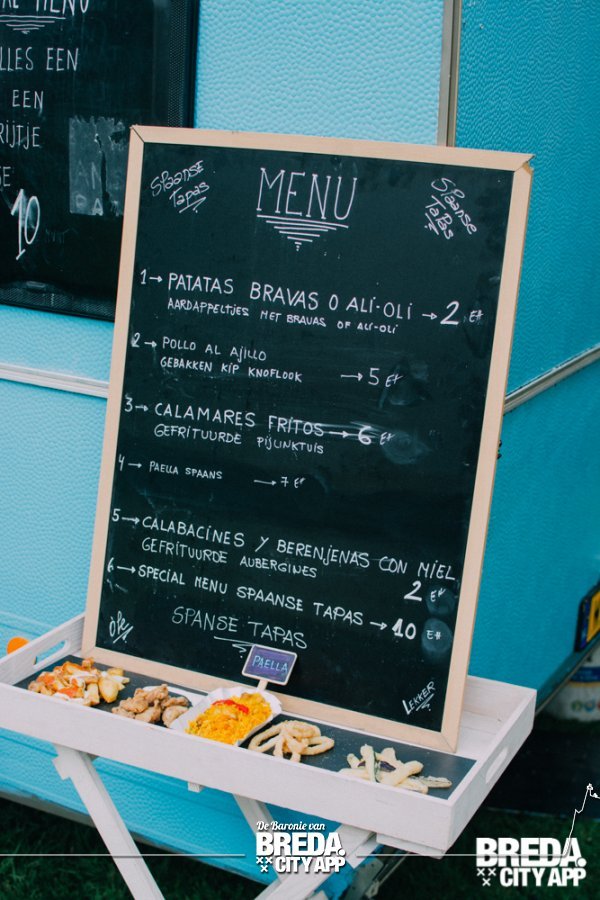 MENU
LLES EEN
EEN
RIJTJE
10
Spaanse
Tapas
MENU
Spaanse
Tapas
1→ PATATAS BRAVAS O ALI-OLI → 2 E+
AARDAPPELTJES MET BRAVAS OF ALI-OLI
2→ POLLO AL AJILLO
GEBAKKEN KIP KNOFLOOK → 5 E+
3→ CALAMARES FRITOS → 6 E+
GEFRITUURDE PIJLINKTUIS
4→ PAELLA SPAANS → 7 E+
5→ CALABACINES Y BERENJENAS CON MIEL
GEFRITUURDE AUBERGINES 2 E+
6→ SPECIAL MENU SPAANSE TAPAS → 10 E+
SPANSE TAPAS
Ole
LEKKER
PAELLA
De Baronie van
BREDA.
CITY APP
BREDA.
CITY APP